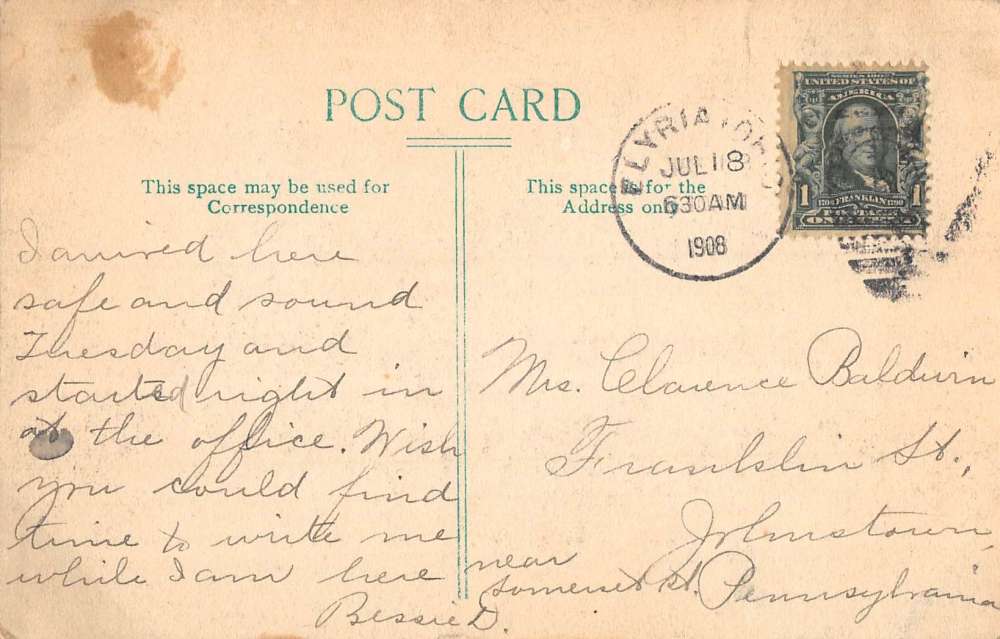 POST CARD
This space may be used for
Correspondence
This space is for the
Address only
ELYRIA, OHIO
JUL 18
630AM
1908
SERIES 1902
UNITED STATES OF
AMERICA
1 1
1706 FRANKLIN 1790
POSTAGE
ONE CENT
I arrived here
safe and sound
Tuesday and
started right in
at the office. Wish
you could find
time to write me
while I am here
Bessie D.
Mrs. Clarence Baldwin
Franklin St.,
Johnstown,
near
Somerset St. Pennsylvania